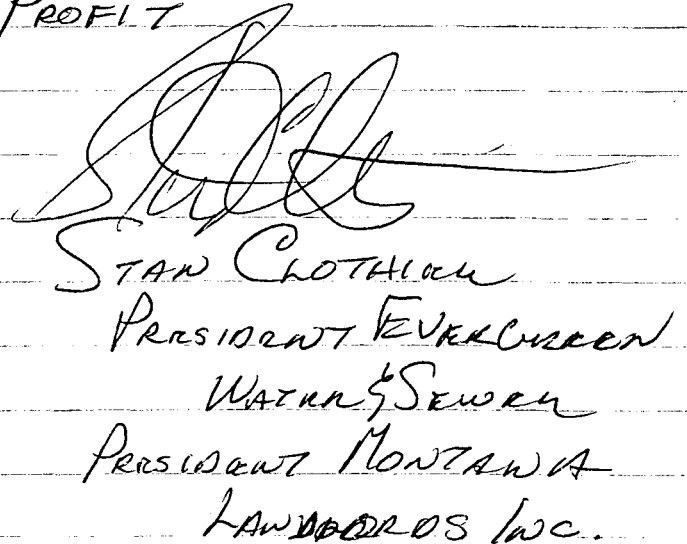 PROFIT
STAN CLOTHIER
PRESIDENT EVERGREEN
WATER & SEWER
PRESIDENT MONTANA
LANDLORDS INC.